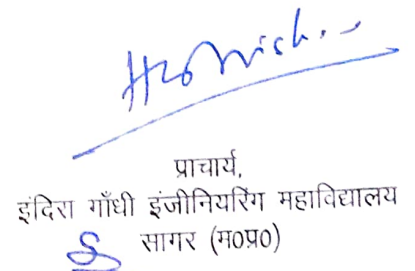 प्राचार्य,
इंदिरा गाँधी इंजीनियरिंग महाविद्यालय
सागर (म0प्र0)